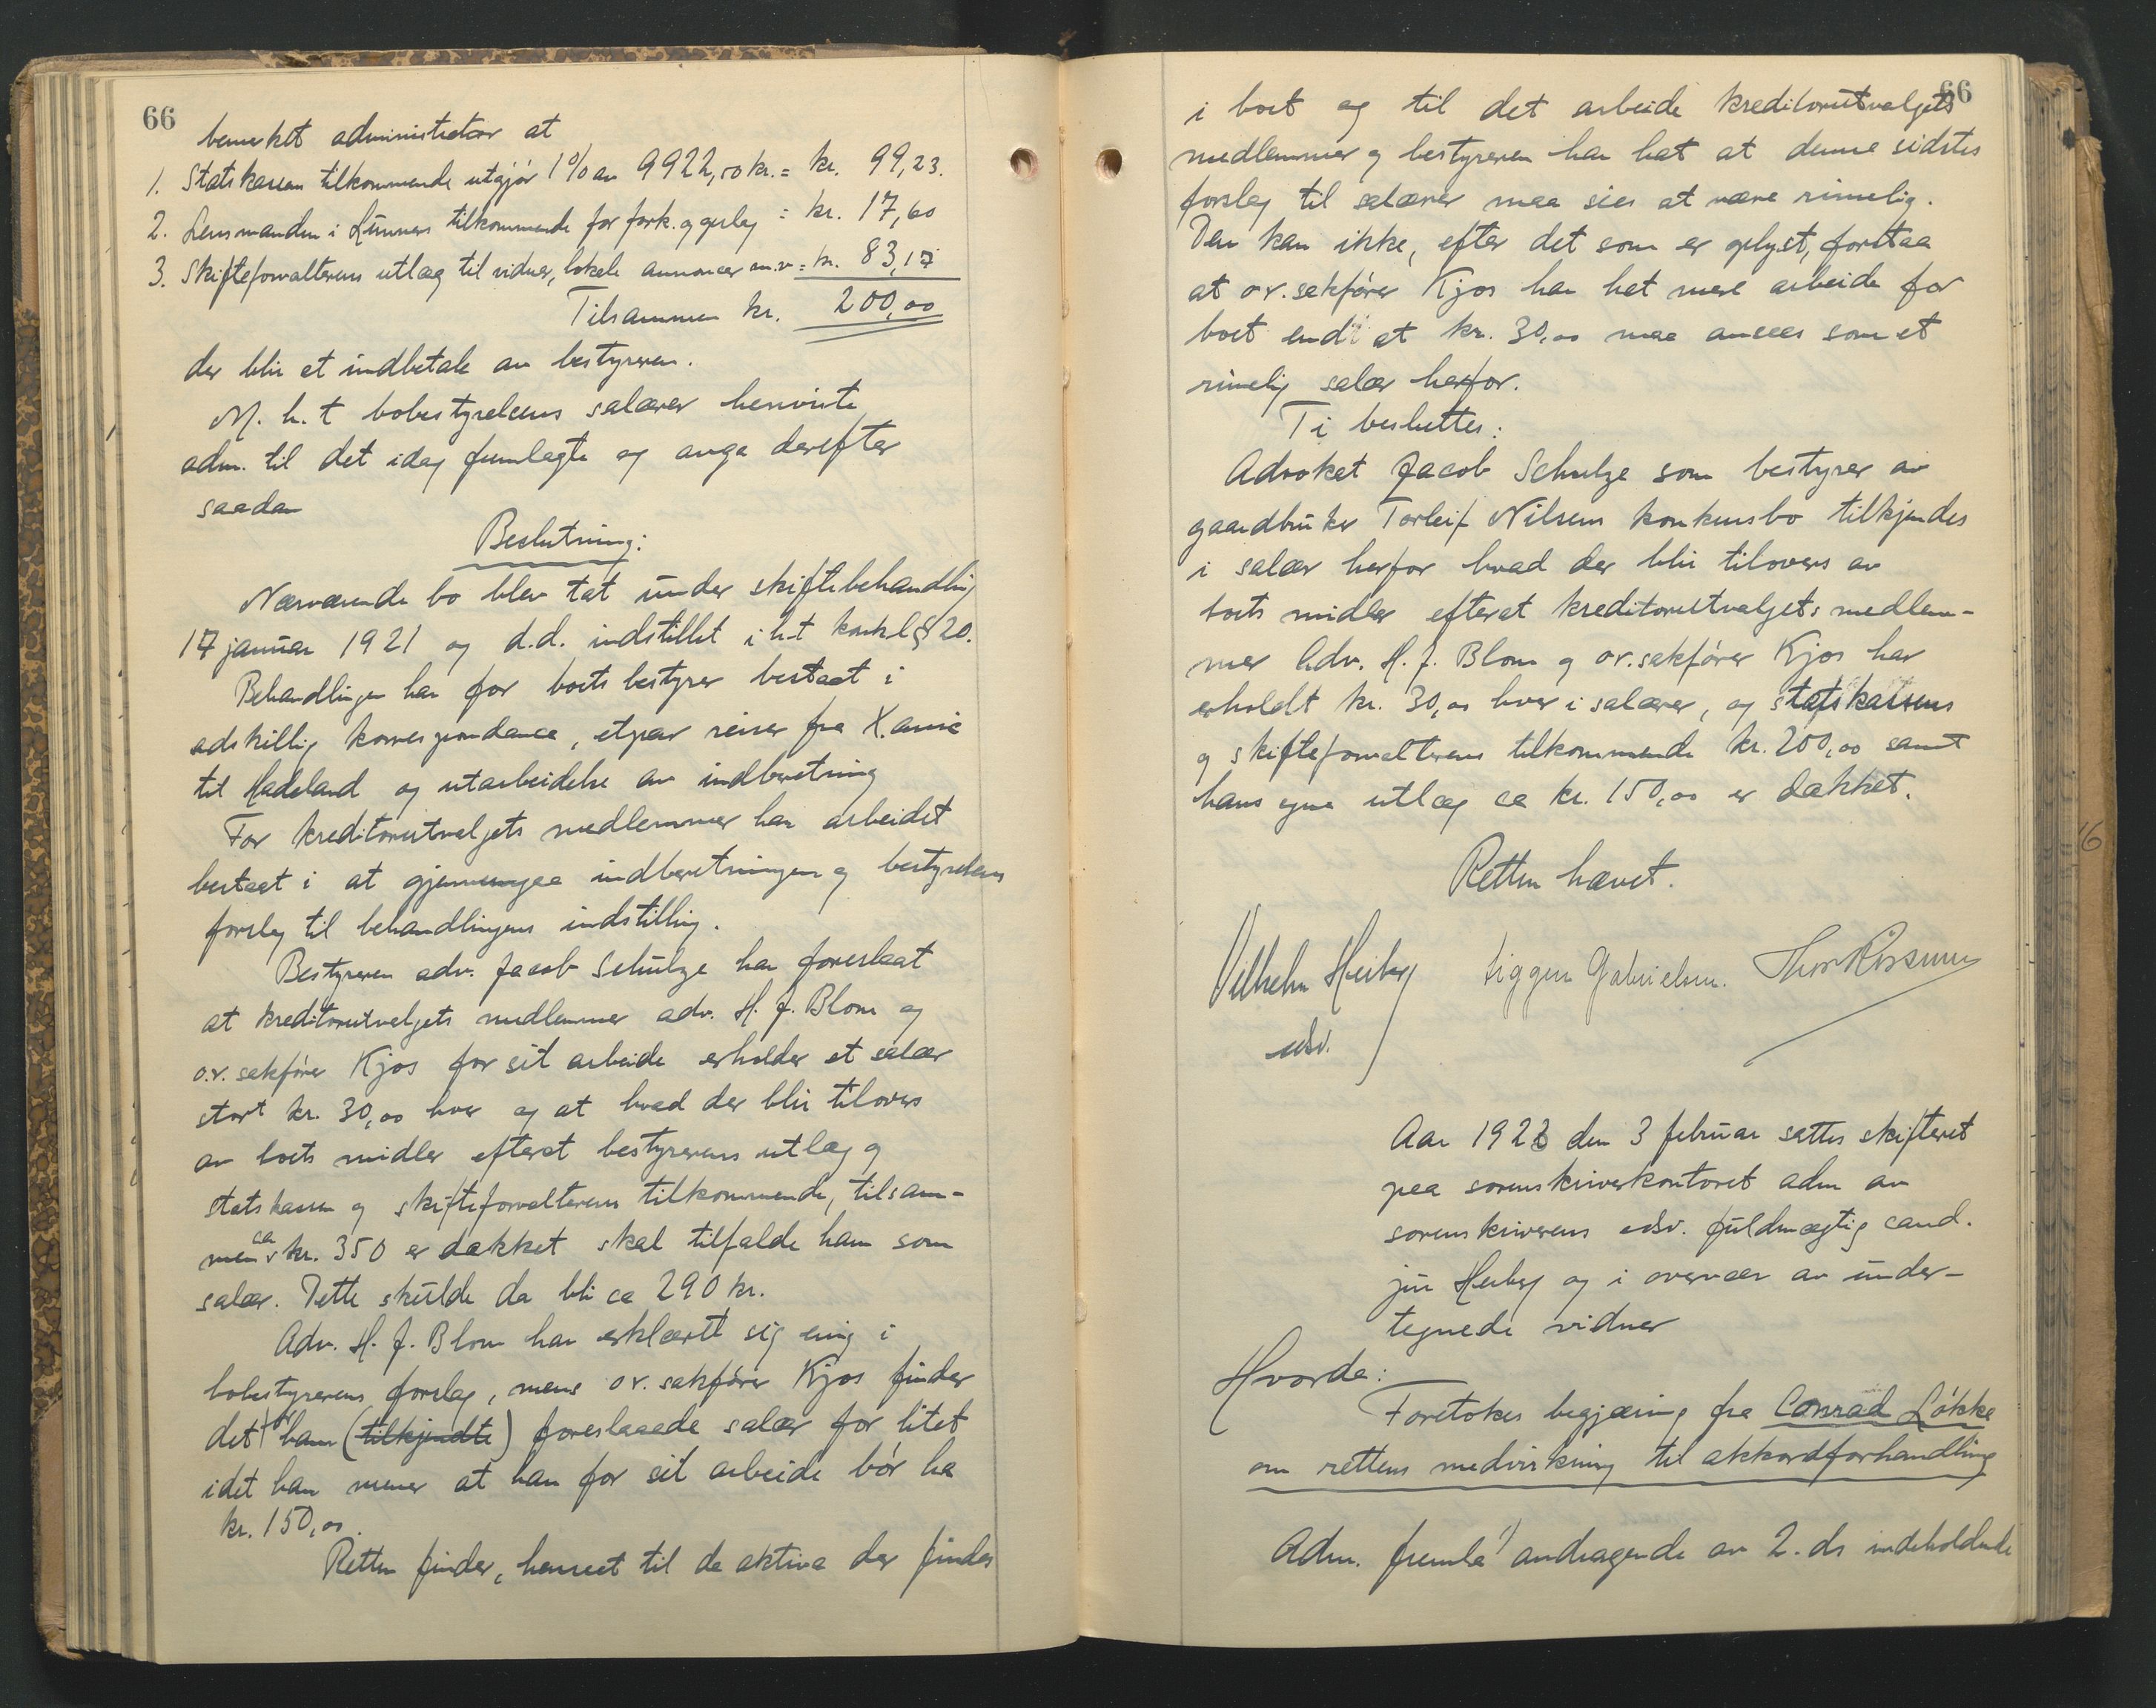 66
bemerket administrator at
1. Statskassen tilkommende utgjør 1% av 9922,50 kr. = kr. 99,23.
2. Lensmanden i Lunners tilkommende for fork. og opslag = kr. 17,60
3. Skifteforvalterens utlæg til vidner, lokale annoncer m.v. = kr. 83,17
Tilsammen kr. 200,00
der blir at indbetale av bestyreren.
M. h. t bobestyrelsens salærer henviste
adm. til det idag fremlagte og avga derefter
saadan
Beslutning:
Nærværende bo blev tat under skiftebehandling
17 januar 1921 og d.d. indstillet i h.t konkl § 20.
Behandlingen har for boets bestyrer bestaaet i
adskillig korrespondance, etpar reiser fra X.ania
til Hadeland og utarbeidelse av indberetning
For kreditorutvalgets medlemmer har arbeidet
bestaaet i at gjennemgaa indberetningen og bestyrelsens
forslag til behandlingens indstilling.
Bestyreren adv. Jacob Schulze har foreslaat
at kreditorutvalgets medlemmer adv. H. J. Blom og
o.r. sakfører Kjos for sit arbeide erholder et salær
stort kr. 30,00 hver og at hvad der blir tilovers
av boets midler efterat bestyrerens utlæg og
statskassen og skifteforvalterens tilkommende, tilsam-
men ca kr. 350 er dækket skal tilfalde ham som
salær. Dette skulde da bli ca 290 kr.
Adv. H. J. Blom har erklært sig enig i
bobestyrerens forslag, mens o.r. sakfører Kjos finder
det for ham (tilkjendte) foreslaaede salær for litet
idet han mener at han for sit arbeide bør ha
kr. 150,00.
Retten finder, henseet til de aktiva der findes
66
i boet og til det arbeide kreditorutvalgets
medlemmer og bestyreren har hat at denne sidstes
forslag til salærer maa sies at være rimelig.
Den kan ikke, efter det som er oplyst, forstaa
at o.r. sakfører Kjos har hat mere arbeide for
boet end at kr. 30,00 maa ansees som et
rimelig salær herfor.
Ti besluttes:
Advokat Jacob Schulze som bestyrer av
gaardbruker Torleif Nilsens konkursbo tilkjendes
i salær herfor hvad der blir tilovers av
boets midler efterat kreditorutvalgets medlem-
mer Adv. H. J. Blom og o.r. sakfører Kjos har
erholdt kr. 30,00 hver i salærer, og statskassens
og skifteforvalterens tilkommende kr. 200,00 samt
hans egne utlæg ca kr. 150,00 er dækket.
Retten hævet.
Vilhelm Heiberg Siggen Gabrielsen. Thor
edsv.
Aar 1922 den 3 februar sattes skifteret
paa sorenskriverkontoret adm av
sorenskriverens edsv. fuldmægtig cand.
jur Heiberg og i overvær av under-
tegnede vidner
Hvorda:
Foretokes begjæring fra Conrad Løkke
om rettens medvirkning til akkordforhandling
Adm. fremla 1) andragende av 2. ds indeholdende